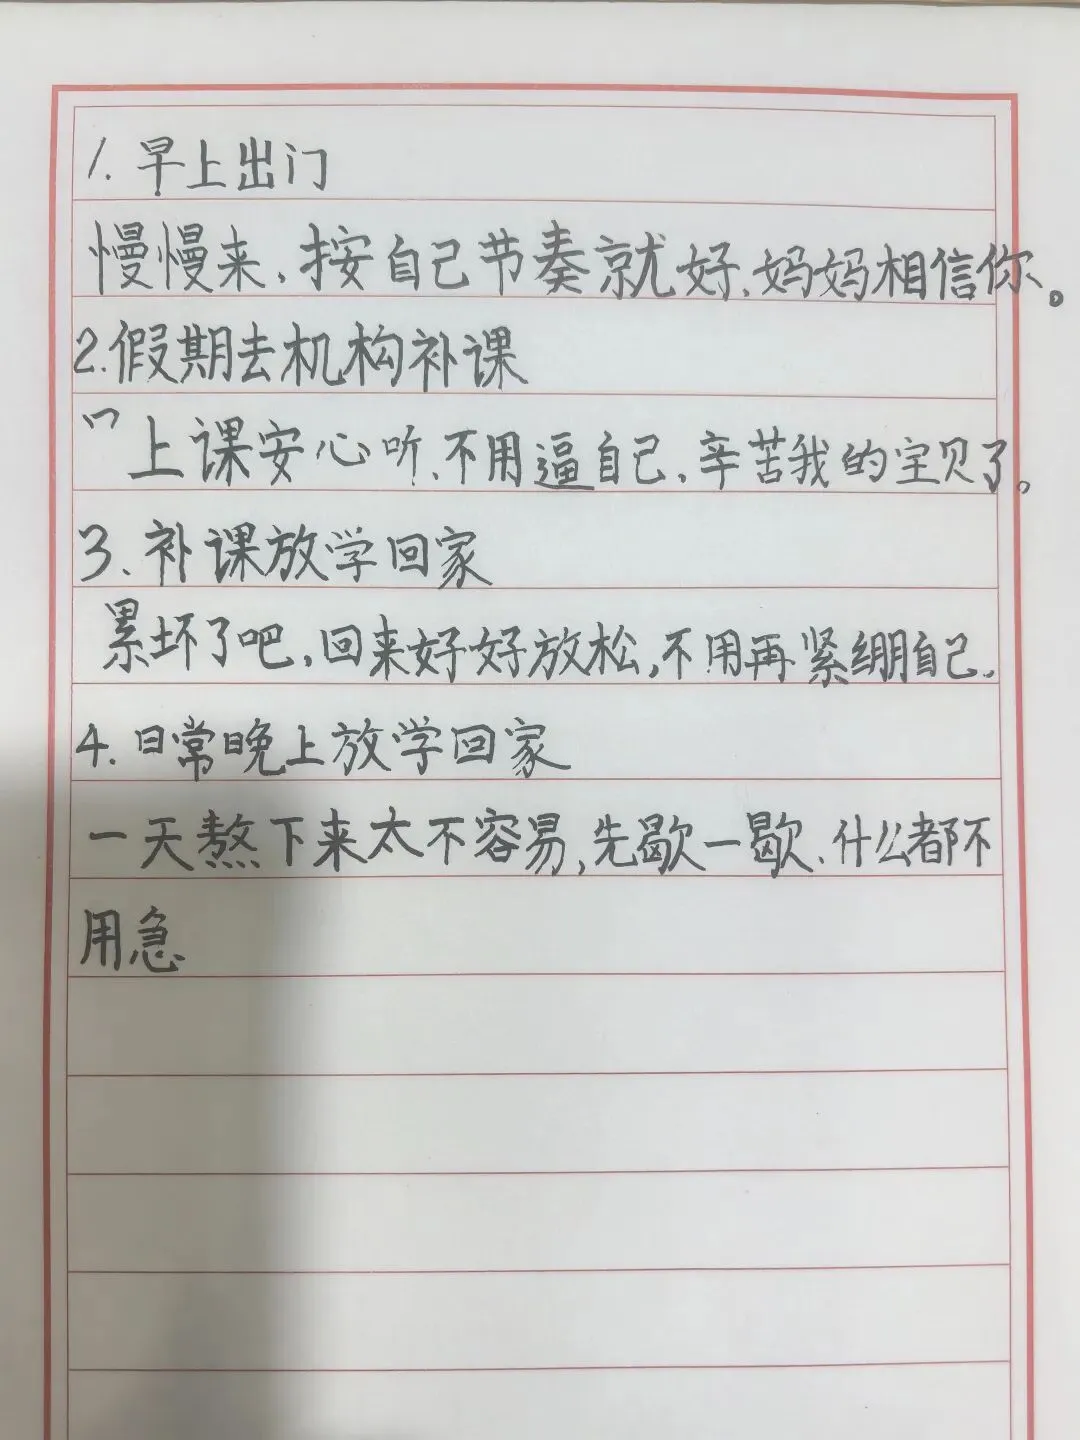 1. 早上出门
慢慢来，按自己节奏就好、妈妈相信你。
2. 假期去机构补课
上课安心听、不用逼自己，辛苦我的宝贝了。
3、补课放学回家
累坏了吧，回来好好放松，不用再紧绷自己.
4. 日常晚上放学回家
一天熬下来太不容易，先歇一歇、什么都不
用急